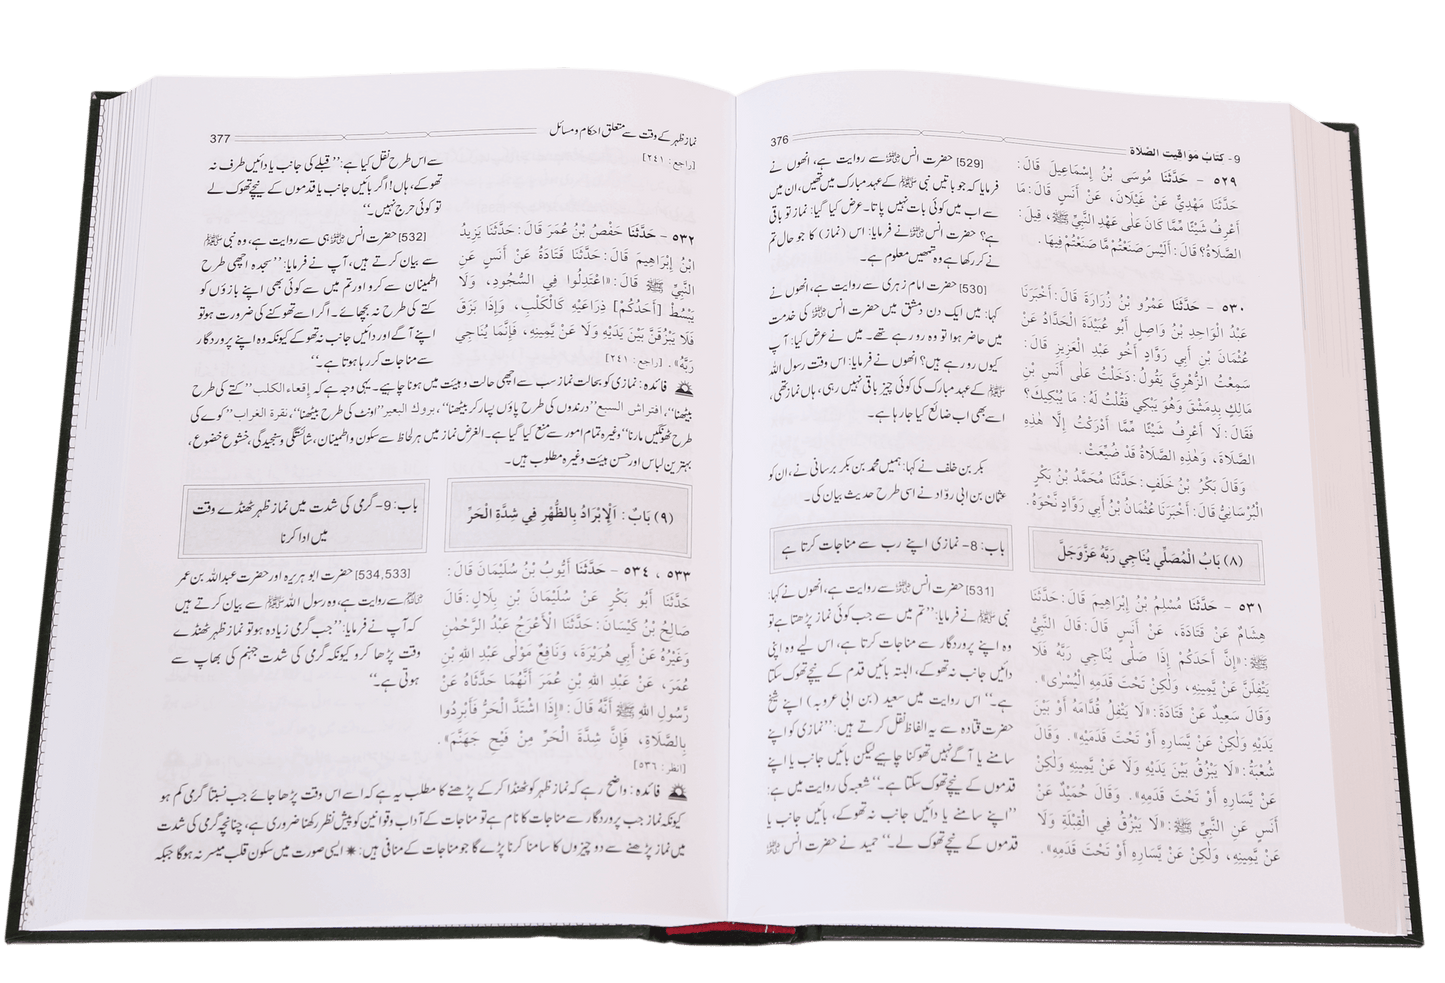 9- كتابُ مواقيت الصّلاة
376
٥٢٩ - حَدَّثَنَا مُوسَى بْنُ إِسْمَاعِيلَ قَالَ:
حَدَّثَنَا مَهْدِيٌّ عَنْ غَيْلَانَ، عَنْ أَنَسٍ قَالَ: مَا
أَعْرِفُ شَيْئًا مِّمَّا كَانَ عَلَى عَهْدِ النَّبِيِّ ﷺ، قِيلَ:
الصَّلَاةُ؟ قَالَ: أَلَيْسَ صَنَعْتُمْ مَّا صَنَعْتُمْ فِيهَا.
[529] حضرت انس ؓ سے روایت ہے، انھوں نے
فرمایا کہ جو باتیں نبی ﷺ کے عہد مبارک میں تھیں، ان میں
سے اب میں کوئی بات نہیں پاتا۔ عرض کیا گیا: نماز تو باقی
ہے؟ حضرت انس ؓ نے فرمایا: اس (نماز) کا جو حال تم
نے کر رکھا ہے وہ تمھیں معلوم ہے۔
٥٣٠ - حَدَّثَنَا عَمْرُو بْنُ زُرَارَةَ قَالَ: أَخْبَرَنَا
عَبْدُ الْوَاحِدِ بْنُ وَاصِلٍ أَبُو عُبَيْدَةَ الْحَدَّادُ عَنْ
عُثْمَانَ بْنِ أَبِي رَوَّادٍ أَخُو عَبْدِ الْعَزِيزِ قَالَ:
سَمِعْتُ الزُّهْرِيَّ يَقُولُ: دَخَلْتُ عَلَى أَنَسِ بْنِ
مَالِكٍ بِدِمَشْقَ وَهُوَ يَبْكِي فَقُلْتُ لَهُ: مَا يُبْكِيكَ؟
فَقَالَ: لَا أَعْرِفُ شَيْئًا مِّمَّا أَدْرَكْتُ إِلَّا هٰذِهِ
الصَّلَاةَ، وَهٰذِهِ الصَّلَاةُ قَدْ ضُيِّعَتْ.
[530] حضرت امام زہری سے روایت ہے، انھوں نے
کہا: میں ایک دن دمشق میں حضرت انس ؓ کی خدمت
میں حاضر ہوا تو وہ رو رہے تھے۔ میں نے عرض کیا: آپ
کیوں رو رہے ہیں؟ انھوں نے فرمایا: اس وقت رسول اللہ
ﷺ کے عہد مبارک کی کوئی چیز باقی نہیں رہی، ہاں نماز تھی،
اسے بھی اب ضائع کیا جا رہا ہے۔
وَقَالَ بَكْرُ بْنُ خَلَفٍ: حَدَّثَنَا مُحَمَّدُ بْنُ بَكْرٍ
الْبُرْسَانِيُّ قَالَ: أَخْبَرَنَا عُثْمَانُ بْنُ أَبِي رَوَّادٍ نَّحْوَهُ.
بکر بن خلف نے کہا: ہمیں محمد بن بکر برسانی نے، ان کو
عثمان بن ابی روّاد نے اسی طرح حدیث بیان کی۔
(٨) بَابُ الْمُصَلِّي يُنَاجِي رَبَّهُ عَزَّ وَجَلَّ
باب: 8- نمازی اپنے رب سے مناجات کرتا ہے
٥٣١ - حَدَّثَنَا مُسْلِمُ بْنُ إِبْرَاهِيمَ قَالَ: حَدَّثَنَا
هِشَامٌ عَنْ قَتَادَةَ، عَنْ أَنَسٍ قَالَ: قَالَ النَّبِيُّ
ﷺ: «إِنَّ أَحَدَكُمْ إِذَا صَلَّى يُنَاجِي رَبَّهُ فَلَا
يَتْفِلَنَّ عَنْ يَّمِينِهِ، وَلٰكِنْ تَحْتَ قَدَمِهِ الْيُسْرٰى».
وَقَالَ سَعِيدٌ عَنْ قَتَادَةَ: «لَا يَتْفِلُ قُدَّامَهُ أَوْ بَيْنَ
يَدَيْهِ وَلٰكِنْ عَنْ يَّسَارِهِ أَوْ تَحْتَ قَدَمَيْهِ». وَقَالَ
شُعْبَةُ: «لَا يَبْزُقُ بَيْنَ يَدَيْهِ وَلَا عَنْ يَّمِينِهِ وَلٰكِنْ
عَنْ يَّسَارِهِ أَوْ تَحْتَ قَدَمِهِ». وَقَالَ حُمَيْدٌ عَنْ
أَنَسٍ عَنِ النَّبِيِّ ﷺ: «لَا يَبْزُقْ فِي الْقِبْلَةِ وَلَا
عَنْ يَّمِينِهِ، وَلٰكِنْ عَنْ يَّسَارِهِ أَوْ تَحْتَ قَدَمِهِ».
[531] حضرت انس ؓ سے روایت ہے، انھوں نے کہا:
نبی ﷺ نے فرمایا: ’’تم میں سے جب کوئی نماز پڑھتا ہے تو
وہ اپنے پروردگار سے مناجات کرتا ہے، اس لیے وہ اپنی
دائیں جانب نہ تھوکے، البتہ بائیں قدم کے نیچے تھوک سکتا
ہے۔‘‘ اس روایت میں سعید (بن ابی عروبہ) اپنے شیخ
حضرت قتادہ سے یہ الفاظ نقل کرتے ہیں: ’’نمازی کو اپنے
سامنے یا آگے نہیں تھوکنا چاہیے لیکن بائیں جانب یا اپنے
قدموں کے نیچے تھوک سکتا ہے۔‘‘ شعبہ کی روایت میں ہے:
’’اپنے سامنے یا دائیں جانب نہ تھوکے، بائیں جانب یا
قدموں کے نیچے تھوک لے۔‘‘ حمید نے حضرت انس ؓ
نماز ظہر کے وقت سے متعلق احکام و مسائل
377
[راجع: ٢٤١]
سے اس طرح نقل کیا ہے: ’’قبلے کی جانب یا دائیں طرف نہ
تھوکے، ہاں! اگر بائیں جانب یا قدموں کے نیچے تھوک لے
تو کوئی حرج نہیں۔‘‘
٥٣٢ - حَدَّثَنَا حَفْصُ بْنُ عُمَرَ قَالَ: حَدَّثَنَا يَزِيدُ
ابْنُ إِبْرَاهِيمَ قَالَ: حَدَّثَنَا قَتَادَةُ عَنْ أَنَسٍ عَنِ
النَّبِيِّ ﷺ قَالَ: «اعْتَدِلُوا فِي السُّجُودِ، وَلَا
يَبْسُطْ [أَحَدُكُمْ] ذِرَاعَيْهِ كَالْكَلْبِ، وَإِذَا بَزَقَ
فَلَا يَبْزُقَنَّ بَيْنَ يَدَيْهِ وَلَا عَنْ يَّمِينِهِ، فَإِنَّمَا يُنَاجِي
رَبَّهُ». [راجع: ٢٤١]
[532] حضرت انس ؓ ہی سے روایت ہے، وہ نبی ﷺ
سے بیان کرتے ہیں، آپ نے فرمایا: ’’سجدہ اچھی طرح
اطمینان سے کرو اور تم میں سے کوئی بھی اپنے بازؤں کو
کتے کی طرح نہ بچھائے۔ اگر اسے تھوکنے کی ضرورت ہو تو
اپنے آگے اور دائیں جانب نہ تھوکے کیونکہ وہ اپنے پروردگار
سے مناجات کر رہا ہوتا ہے۔‘‘
فائدہ: نمازی کو بحالت نماز سب سے اچھی حالت و ہیئت میں ہونا چاہیے۔ یہی وجہ ہے کہ إقعاء الكلب ’’کتے کی طرح
بیٹھنا‘‘، افتراش السبع ’’درندوں کی طرح پاؤں پسار کر بیٹھنا‘‘، بروك البعير ’’اونٹ کی طرح بیٹھنا‘‘، نقرة الغراب ’’کوے کی
طرح ٹھونگیں مارنا‘‘ وغیرہ تمام امور سے منع کیا گیا ہے۔ الغرض نماز میں ہر لحاظ سے سکون و اطمینان، شائستگی و سنجیدگی، خشوع خضوع،
بہترین لباس اور حسن ہیئت وغیرہ مطلوب ہیں۔
(٩) بَابُ: اَلْإِبْرَادُ بِالظُّهْرِ فِي شِدَّةِ الْحَرِّ
باب: 9- گرمی کی شدت میں نماز ظہر ٹھنڈے وقت
میں ادا کرنا
٥٣٣ ، ٥٣٤ - حَدَّثَنَا أَيُّوبُ بْنُ سُلَيْمَانَ قَالَ:
حَدَّثَنَا أَبُو بَكْرٍ عَنْ سُلَيْمَانَ بْنِ بِلَالٍ: قَالَ
صَالِحُ بْنُ كَيْسَانَ: حَدَّثَنَا الْأَعْرَجُ عَبْدُ الرَّحْمٰنِ
وَغَيْرُهُ عَنْ أَبِي هُرَيْرَةَ، وَنَافِعٌ مَوْلَى عَبْدِ اللهِ بْنِ
عُمَرَ، عَنْ عَبْدِ اللهِ بْنِ عُمَرَ أَنَّهُمَا حَدَّثَاهُ عَنْ
رَسُولِ اللهِ ﷺ أَنَّهُ قَالَ: «إِذَا اشْتَدَّ الْحَرُّ فَأَبْرِدُوا
بِالصَّلَاةِ، فَإِنَّ شِدَّةَ الْحَرِّ مِنْ فَيْحِ جَهَنَّمَ».
[انظر: ٥٣٦]
[534,533] حضرت ابو ہریرہ اور حضرت عبداللہ بن عمر
ؓ سے روایت ہے، وہ رسول اللہ ﷺ سے بیان کرتے ہیں
کہ آپ نے فرمایا: ’’جب گرمی زیادہ ہو تو نماز ظہر ٹھنڈے
وقت پڑھا کرو کیونکہ گرمی کی شدت جہنم کی بھاپ سے
ہوتی ہے۔‘‘
فائدہ: واضح رہے کہ نماز ظہر کو ٹھنڈا کر کے پڑھنے کا مطلب یہ ہے کہ اسے اس وقت پڑھا جائے جب نسبتاً گرمی کم ہو
کیونکہ نماز جب پروردگار سے مناجات کا نام ہے تو مناجات کے آداب و قوانین کو پیش نظر رکھنا ضروری ہے، چنانچہ گرمی کی شدت
میں نماز پڑھنے سے دو چیزوں کا سامنا کرنا پڑے گا جو مناجات کے منافی ہیں: ✷ ایسی صورت میں سکون قلب میسر نہ ہوگا جبکہ